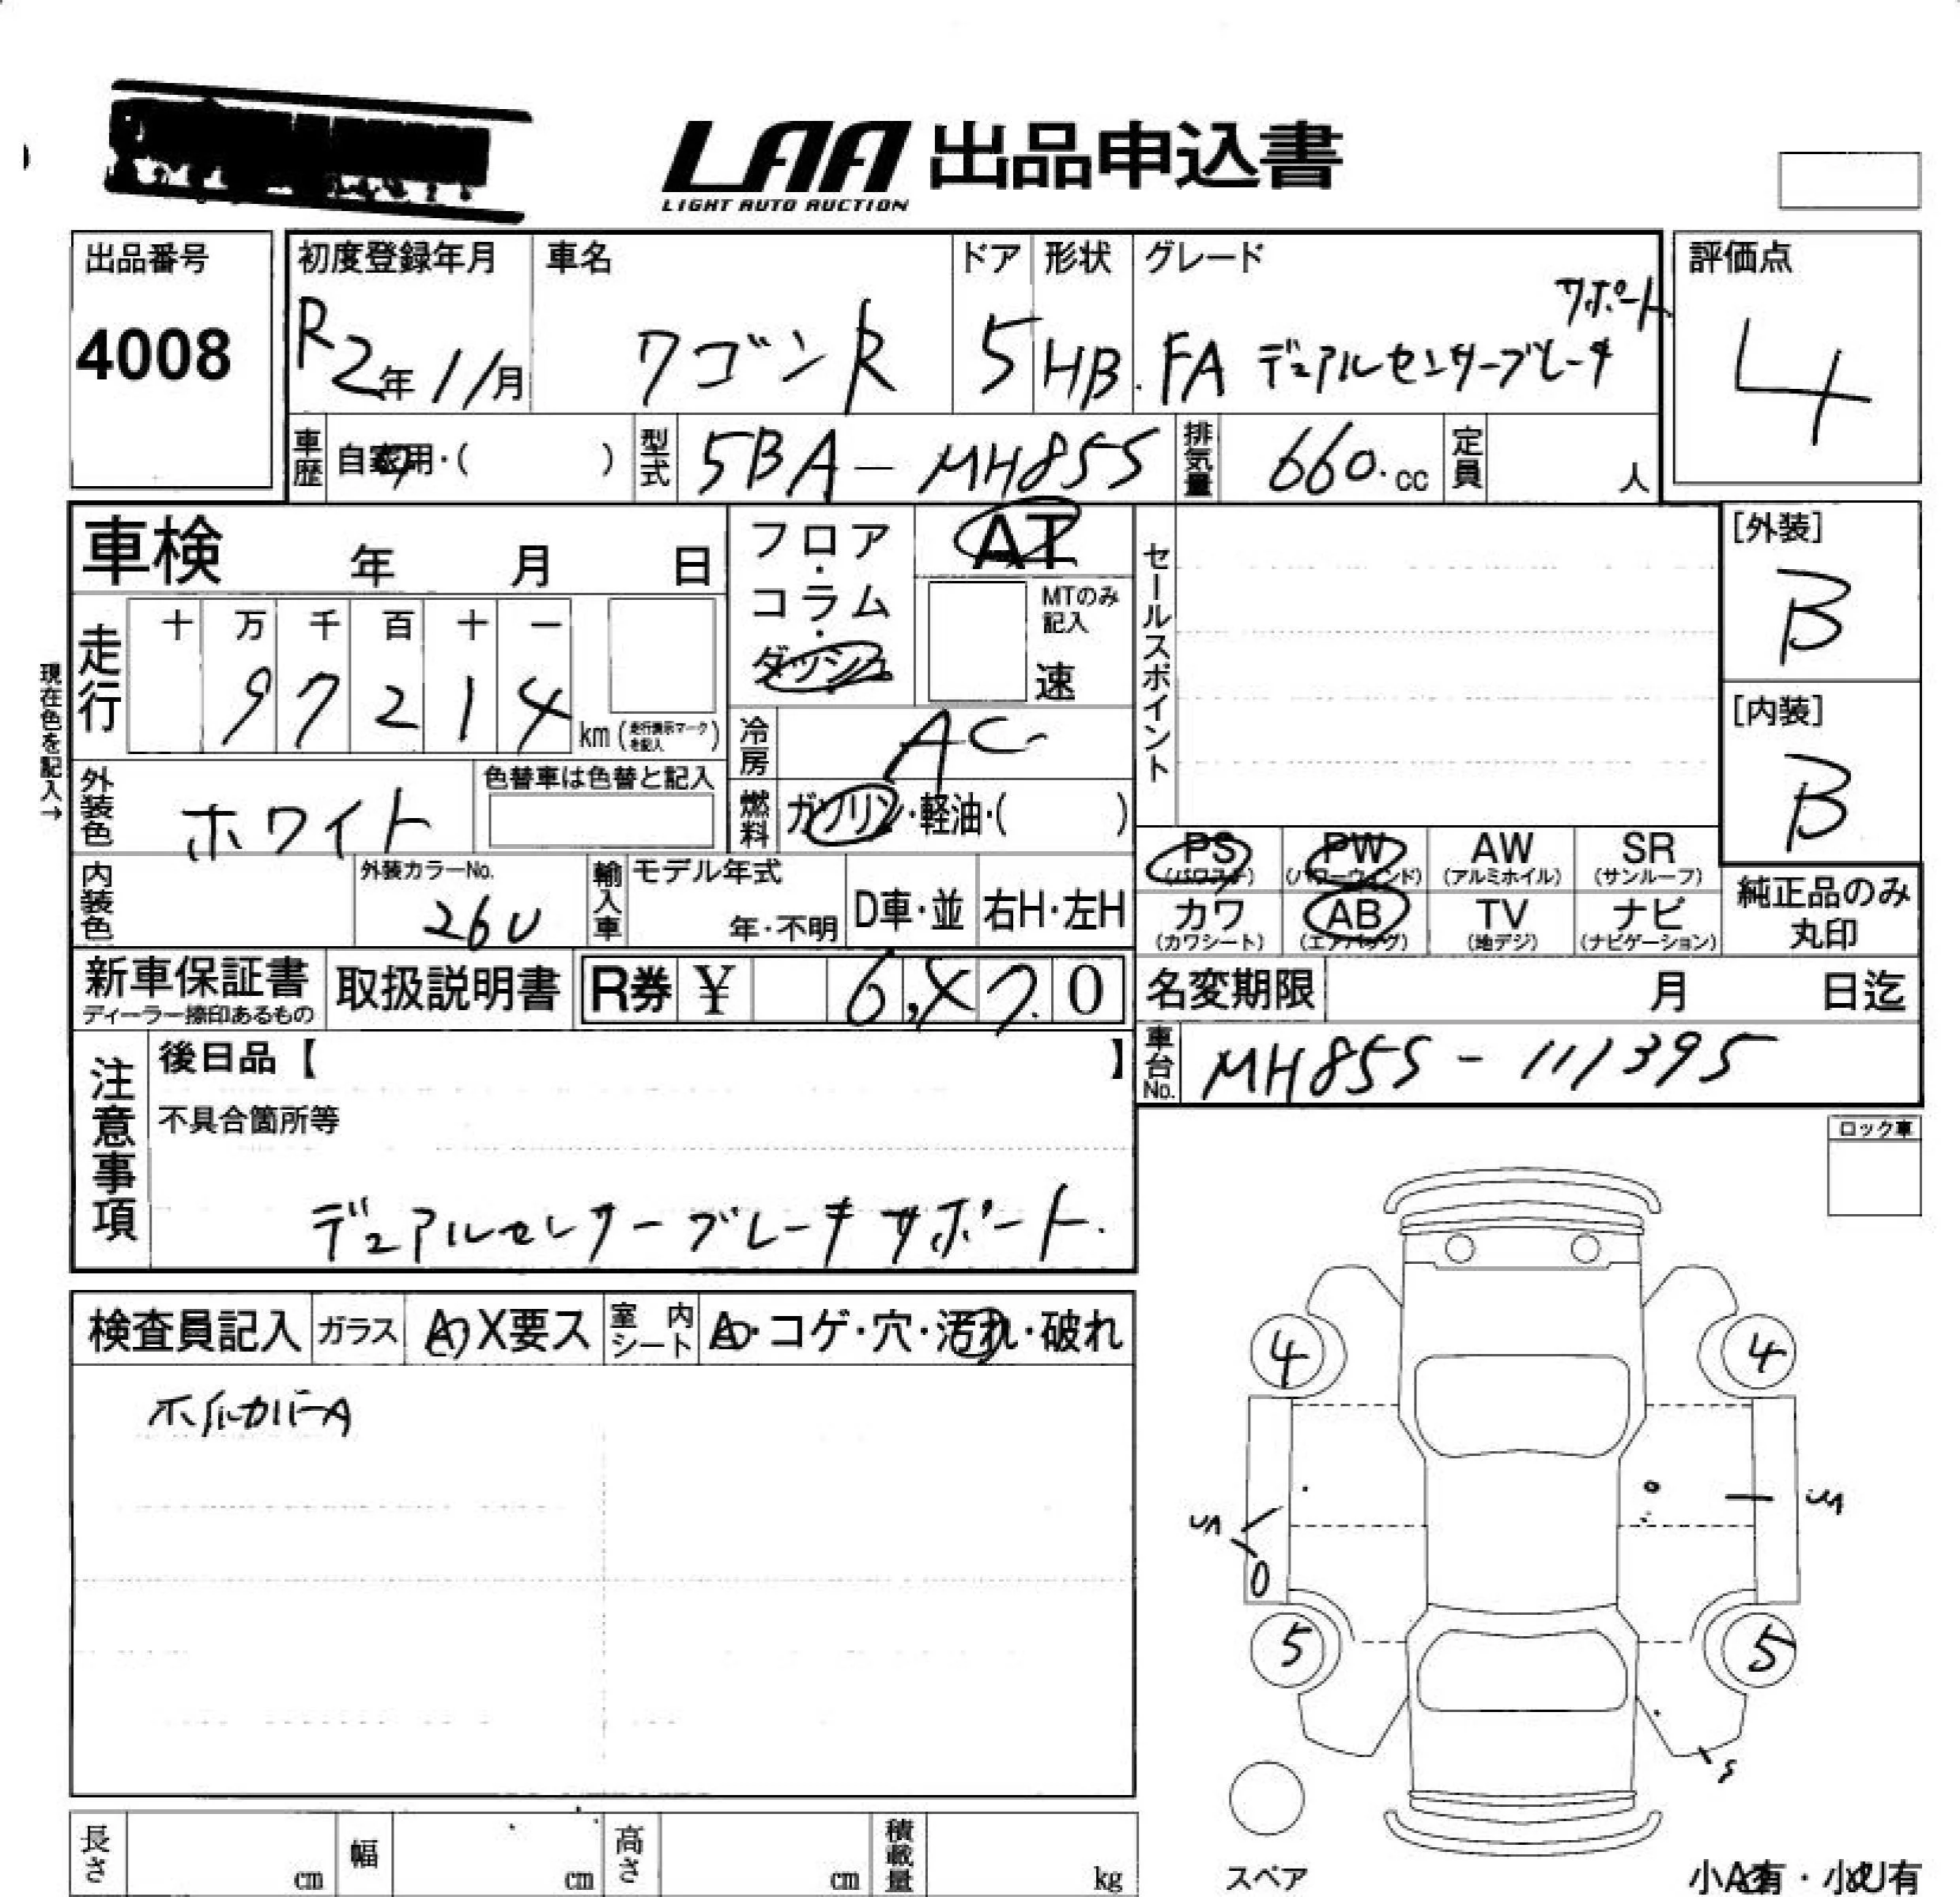 LAA 出品申込書
LIGHT AUTO AUCTION
出品番号
4008
初度登録年月
R2年11月
車名
ワゴンR
ドア
5
形状
HB.
グレード
サポート
FA デュアルセンサーブレーキ
評価点
4
車歴
自家用・( )
型式
5BA-MH85S
排気量
660.cc
定員
人
車検 年 月 日
フロア・コラム・ダッシュ
AT
MTのみ記入
速
セールスポイント
[外装]
B
[内装]
B
現在色を記入→
走行
十 万 千 百 十 一
9 7 2 1 4
km (走行表示マークを記入)
冷房
AC
外装色
ホワイト
色替車は色替と記入
燃料
ガソリン・軽油・( )
PS PW AW SR
(パワステ) (パワーウィンド) (アルミホイル) (サンルーフ)
カワ AB TV ナビ
(カワシート) (エアバッグ) (地デジ) (ナビゲーション)
純正品のみ
丸印
内装色
外装カラーNo.
26U
輸入車
モデル年式
年・不明
D車・並
右H・左H
新車保証書
ディーラー捺印あるもの
取扱説明書
R券 ¥ 0
名変期限 月 日迄
車台No.
MH85S-111395
注意事項
後日品【 】
不具合箇所等
デュアルセンサーブレーキサポート.
ロック車
検査員記入
ガラス
A X要ス
室内シート
A・コゲ・穴・汚れ・破れ
ホイルカバーA
4 4
5 5
スペア
長さ cm
幅 cm
高さ cm
積載量 kg
小A有・小U有